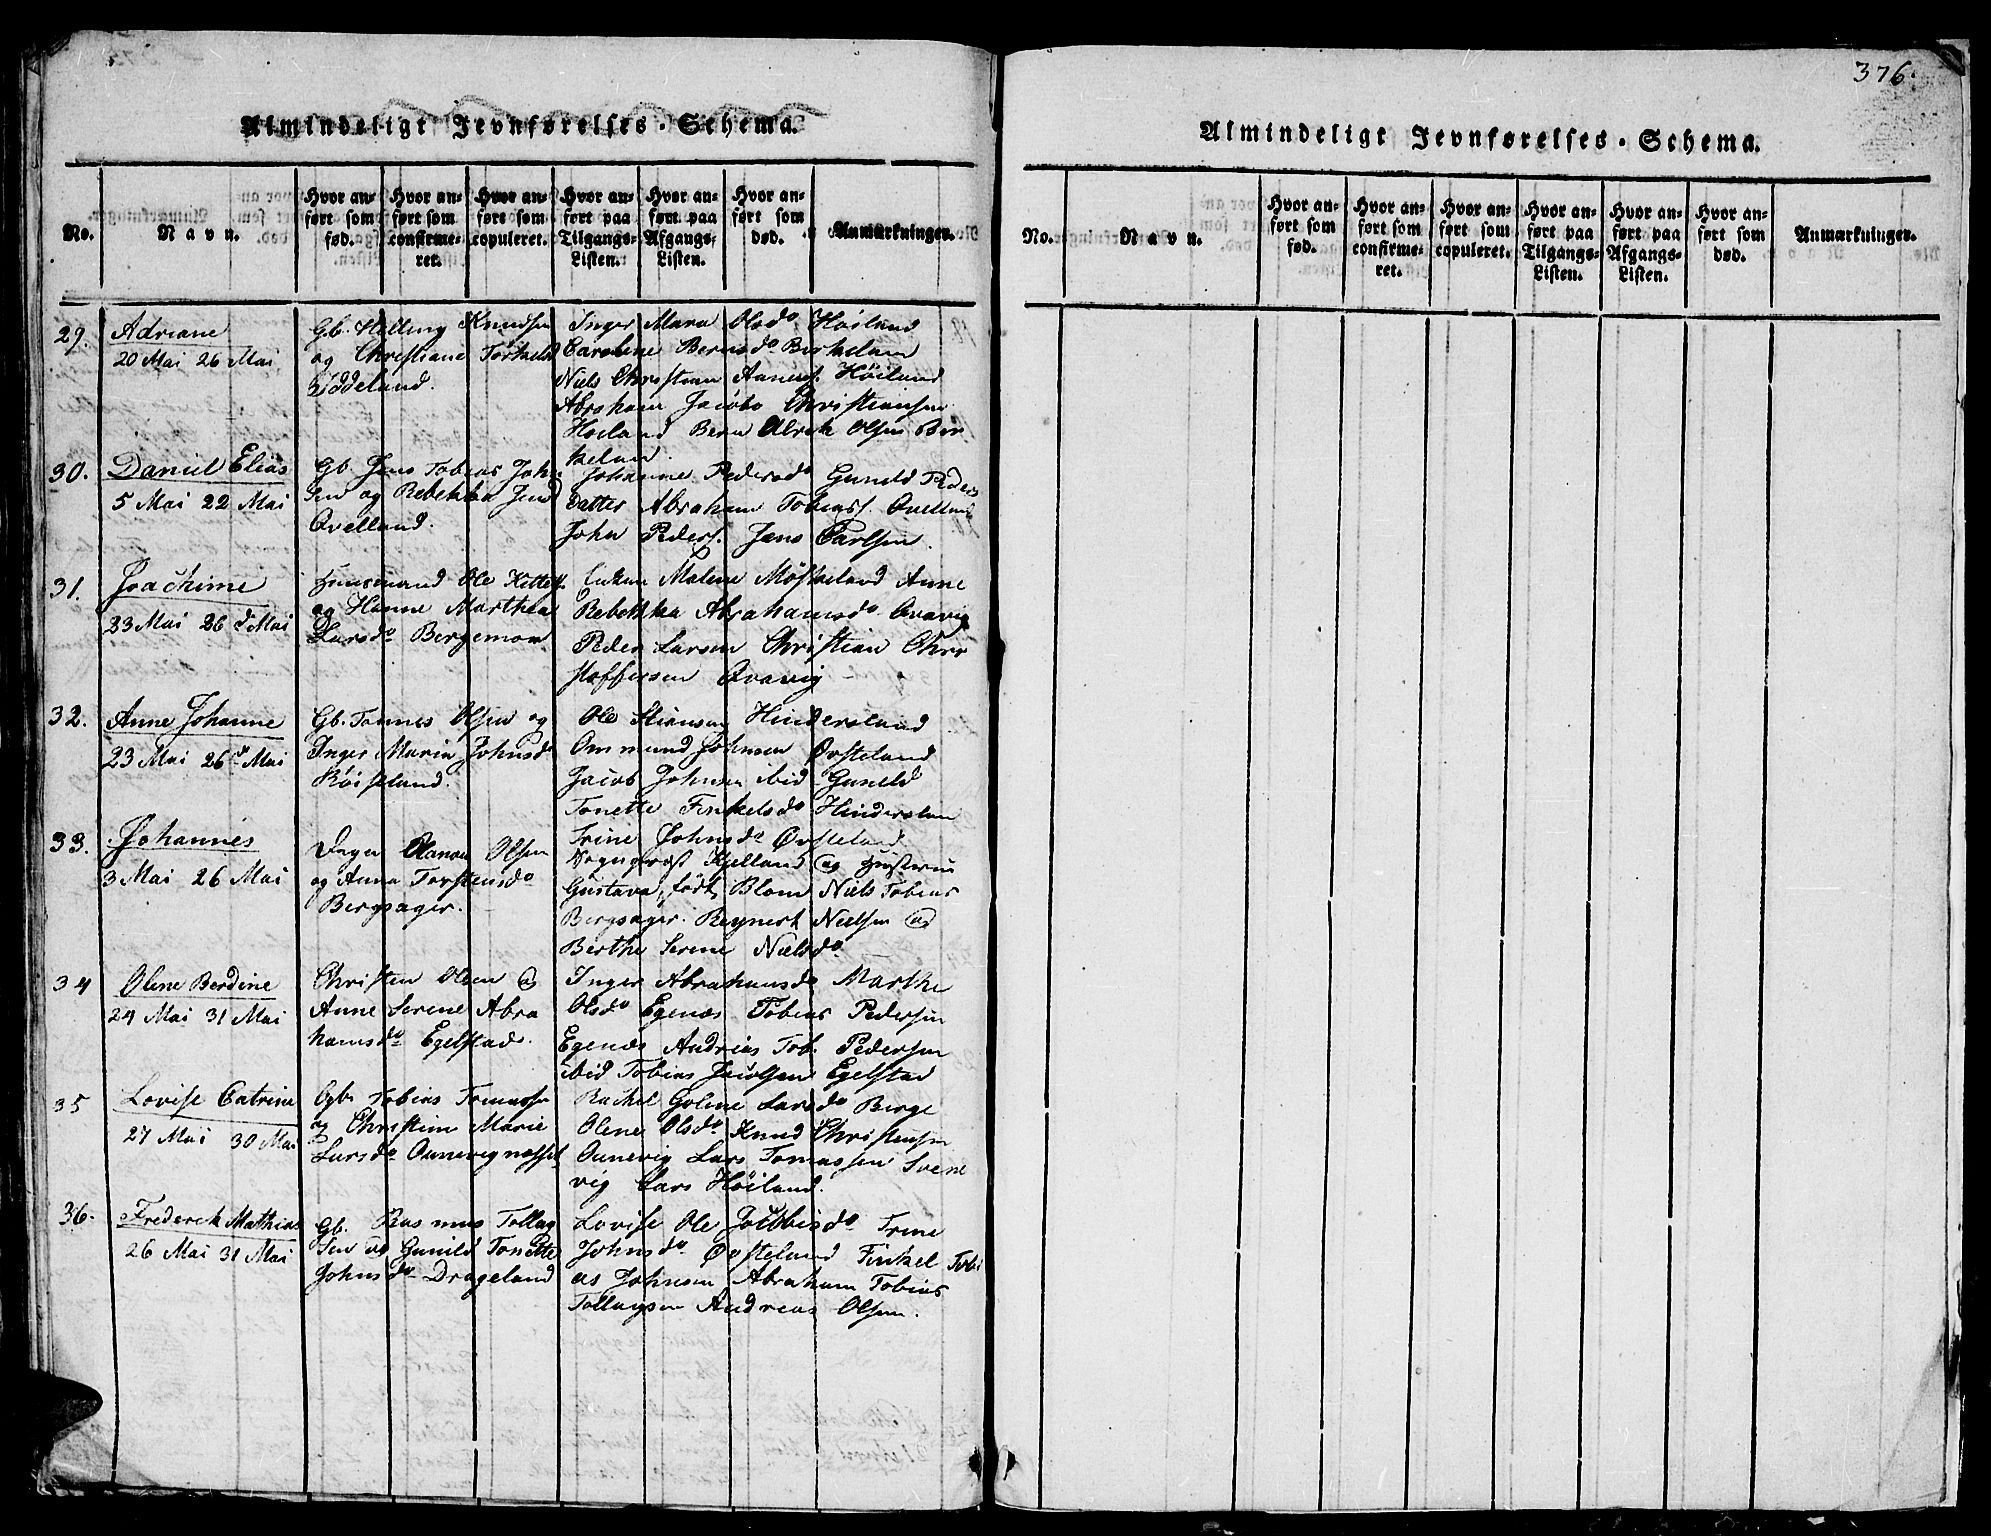 Almindeligt Jevnførelses-Schema.
No.
Navn.
Hvor anført som fød.
Hvor anført som confirmeret.
Hvor anført som copuleret.
Hvor anført paa Tilgangs-Listen.
Hvor anført paa Afgangs-Listen.
Hvor anført som død.
Anmærkninger.
29.
Adriane
20 Mai 26 Mai
Gb. Knudsen
og Christiane Torkelsd
Inger Mara Olsdo Höiland
Caroline Berntsdo Birkeland
Niels Christian Aanens. Höiland
Abraham Jacobs Christiansen
Hoiland Bern Ulrik Olsen Bir
keland.
30.
Daniel Elias
5 Mai 22 Mai
Gb. Jens Tobias John
sen og Rebekka Jensd
Qvelland.
Johanne Pedersdo Guneld Peders
datter Abraham Tobiass. Qvelland
John Peders. Jens Carlsen.
31.
Joachime
23 Mai 26 d Mai
Huusmand Ole Kittels.
og Hanne Marthea
Larsdo Bergemoen
Malene Möskeland Anne
Rebekka Abrahamsdo Qvavig
Peder Larsen Christian Chri
stoffersen Qvavig
32.
Anne Johanne
23 Mai 26 d Mai
Gb. Tonnes Olsen og
Inger Maria Johnsdo
Röiseland.
Ole Hindersland
Ommund Johnsen Øvsteland
Jacob Johnsen ibid Guneld
Tonette Finkelsdo Hinderslan
Trine Johnsdo Øvsteland
33.
Johannes
3 Mai 26 Mai
Olsen
og Anna Torstensdo
Bergsager.
Kjelland og Hustrue
Gustava født Blom Niels Tobias
Bergsager. Reynert Nielsen og
Berthe Serene Nielsdo
34
Olene Berdine
24 Mai 31 Mai
Christen Olsen og
Anne Serene Abra
hamsdo Egelstad.
Inger Abrahamsdo Marthe
Olsdo Egenæs Tobias Pedersen
Egenæs Andreas Tob. Pedersen
ibid Tobias Jacobsen Egelstad
35
Lovise Catrine
27 Mai 30 Mai
Gb. Tobias Tomassen
og Christine Marie
Larsdo Ounevignesset
Rachel Goline Larsdo Berge
Olene Olsdo Knud Christensen
Ounevig Lars Tomassen Svene
vig Lars Höiland.
36.
Frederik Mathias
26 Mai 31 Mai
Gb. Rasmus Tollag
sen og Gunild Tonette
Johnsdo Drageland
Lovise Ole Jacobsdo Trine
Johnsdo Øvsteland Finkel Tobi
as Johnsen Abraham Tobias
Tollagsen Andreas Olsen.
376.
Almindeligt Jevnførelses-Schema.
No.
Navn.
Hvor anført som fød.
Hvor anført som confirmeret.
Hvor anført som copuleret.
Hvor anført paa Tilgangs-Listen.
Hvor anført paa Afgangs-Listen.
Hvor anført som død.
Anmærkninger.